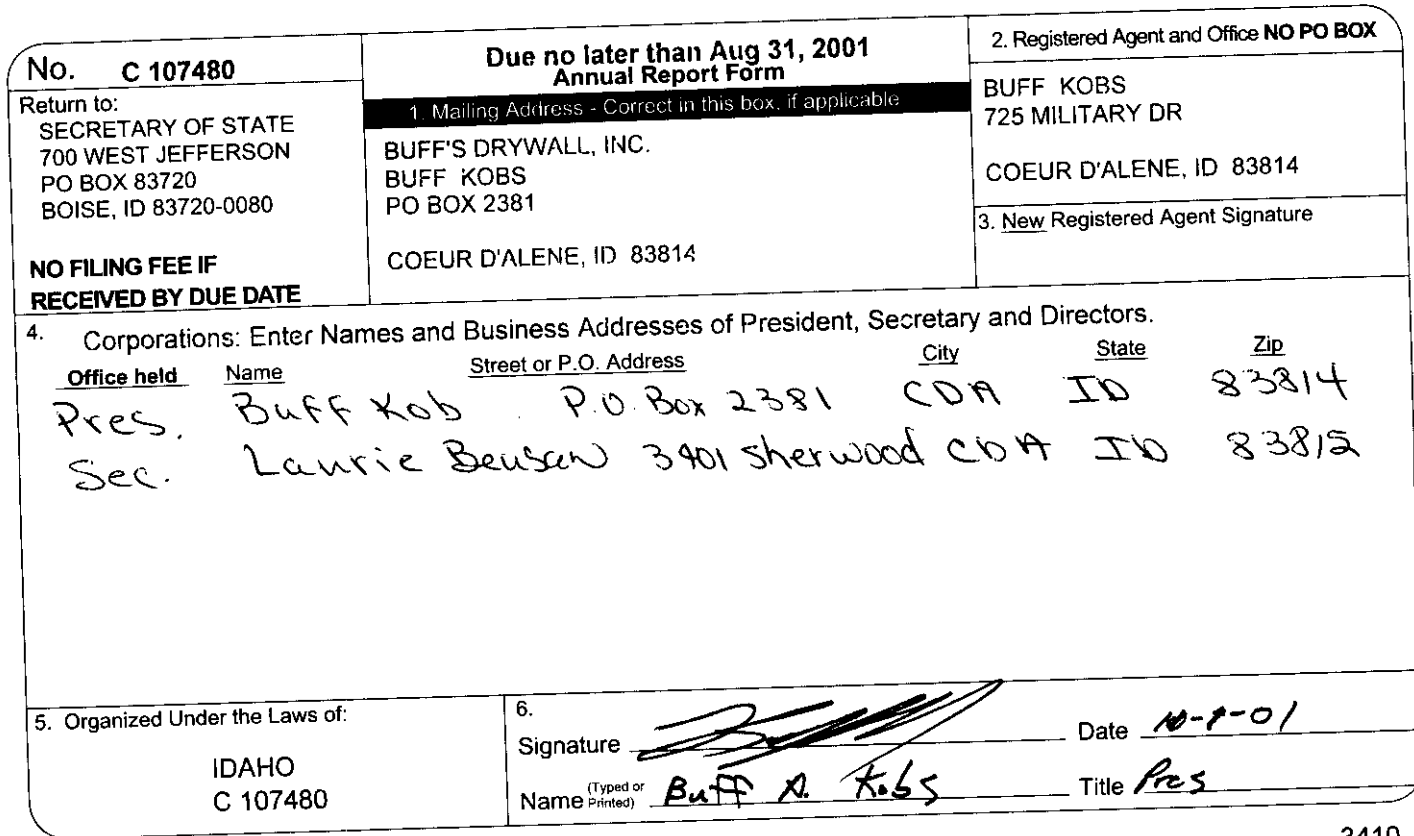 No. C 107480
Return to:
SECRETARY OF STATE
700 WEST JEFFERSON
PO BOX 83720
BOISE, ID 83720-0080
NO FILING FEE IF
RECEIVED BY DUE DATE
Due no later than Aug 31, 2001
Annual Report Form
1. Mailing Address - Correct in this box, if applicable
BUFF'S DRYWALL, INC.
BUFF KOBS
PO BOX 2381
COEUR D'ALENE, ID 83814
2. Registered Agent and Office NO PO BOX
BUFF KOBS
725 MILITARY DR
COEUR D'ALENE, ID 83814
3. New Registered Agent Signature
4. Corporations: Enter Names and Business Addresses of President, Secretary and Directors.
Office held Name Street or P.O. Address City State Zip
Pres. Buff Kob P.O. Box 2381 CDA ID 83814
Sec. Laurie 3401 Sherwood CDA ID 83815
5. Organized Under the Laws of:
IDAHO
C 107480
6.
Signature Date
Name (Typed or Printed) Buff A. Kobs Title Pres